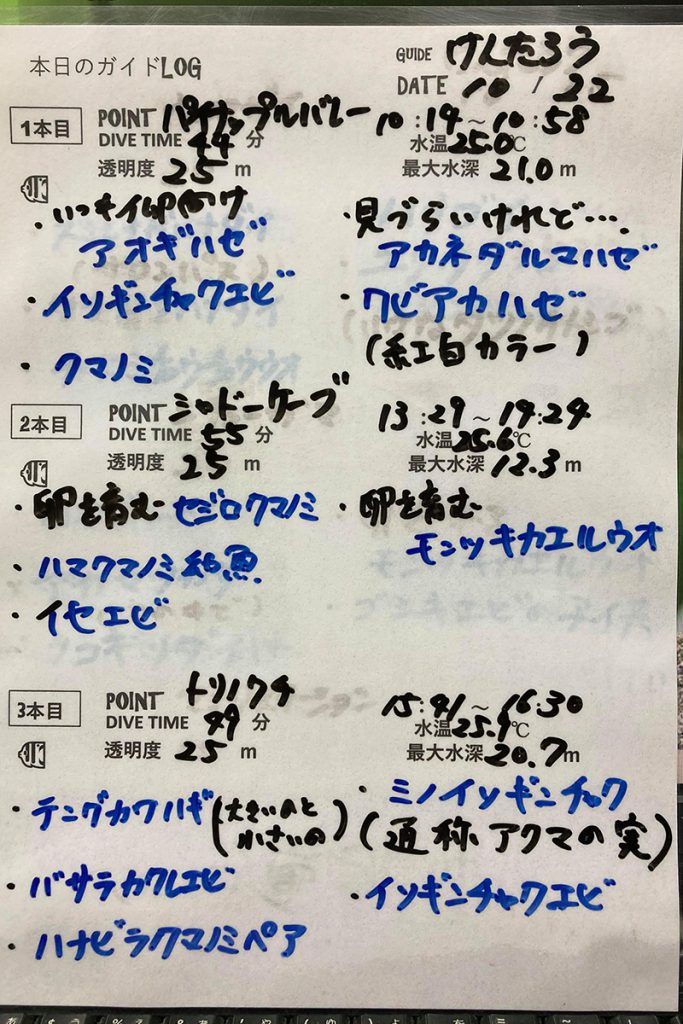 本日のガイドLOG
GUIDE けんたろう
DATE 10 / 22
1本目
POINT パイナップルバレー 10:14～10:58
DIVE TIME 44 分 水温25.0℃
透明度 25 m 最大水深 21.0 m
・いつも仰向け
アオギハゼ
・イソギンチャクエビ
・クマノミ
・見づらいけれど…。
アカネダルマハゼ
・クビアカハゼ
(紅白カラー)
2本目
POINT シャドーケーブ 13:29～14:24
DIVE TIME 55 分 水温25.6℃
透明度 25 m 最大水深 12.3 m
・卵を育む セジロクマノミ
・ハマクマノミ幼魚
・イセエビ
・卵を育む
モンツキカエルウオ
3本目
POINT トリノクチ 15:41～16:30
DIVE TIME 49 分 水温25.9℃
透明度 25 m 最大水深 20.7m
・テングカワハギ(大きいのと
小さいの)
・バサラカクレエビ
・ハナビラクマノミペア
・ミノイソギンチャク
(通称アクマの実)
・イソギンチャクエビ